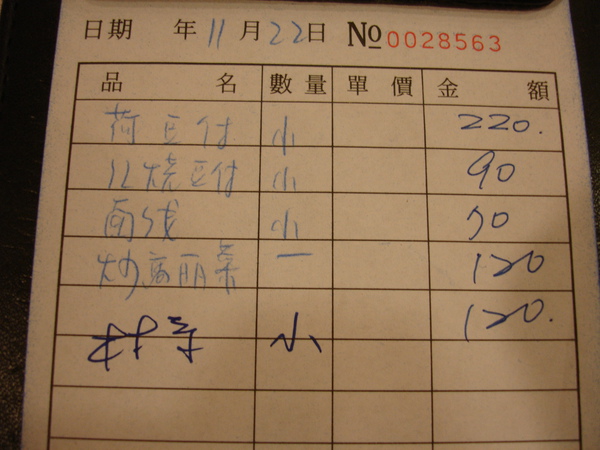 日期 年 11 月 22 日 No 0028563
品名 數量 單價 金額
荷豆付 小 220.
红烧豆付 小 90
面线 小 70
炒高丽菜 一 120
小 120.